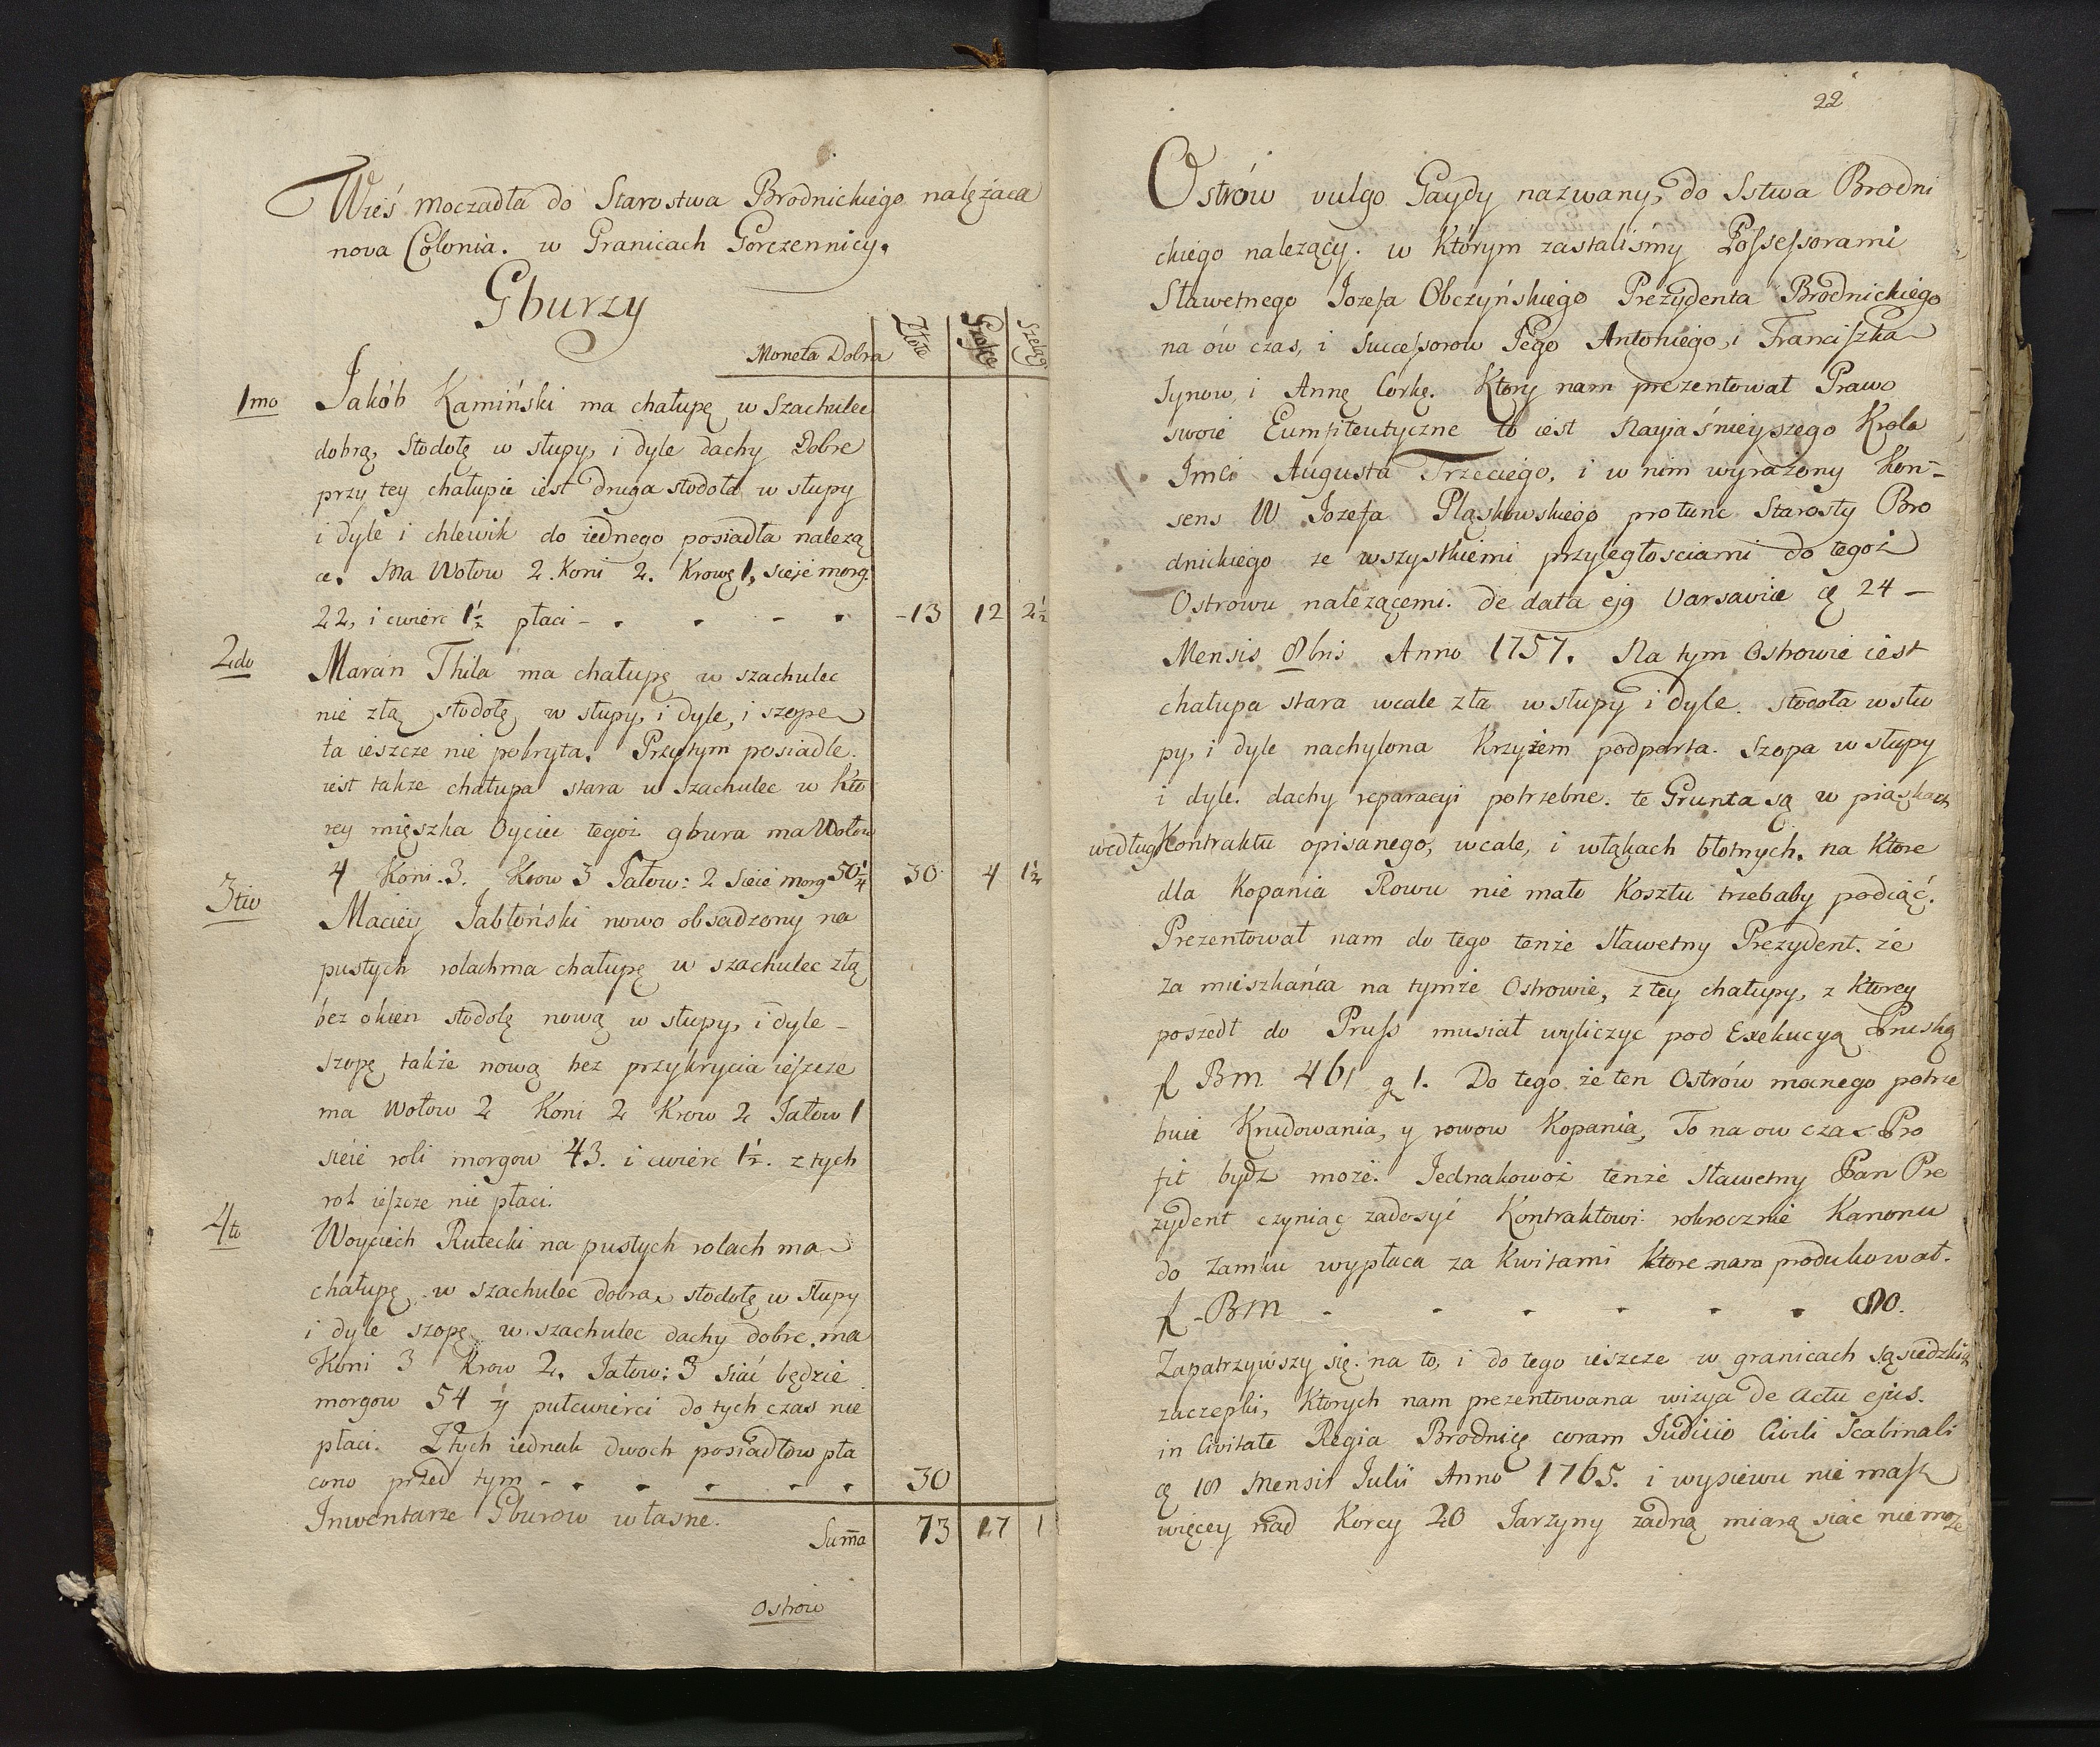 Wieś Moczadła do Starostwa Brodnickiego należąca
nova Colonia. w Granicach Gorczennicy.
Gburzy
Moneta Dobra Złote Grosze Szeląg
1mo Jakób Kamiński ma chałupę w Szachulec
dobrą, Stodołę w słupy, i dyle dachy Dobre
przy tey chałupie iest druga stodoła w słupy
i dyle i chlewik do iednego posiadła nalezą
ce. Ma Wołow 2. Koni 2. Krowę 1, sieje morg:
22, i cwierc 1½ płaci - 13 12 2½
2do Maran Thila ma chałupę w szachulec
nie złą stodołę w słupy, i dyle, i szope
ta ieszcze nie pokryta. Przytym posiadle
iest takze chałupa stara w szachulec w kto
rey mięszka Oyciec tegoż gbura ma Wołow
4 Koni. 3. Krow 3 Jałow: 2 sieie morg 30¼ 30 4 1½
3tio Maciey Jabłoński nowo obsadzony na
pustych rolach ma chałupę w szachulec złą
bez okien stodołę nową w słupy, i dyle -
szopę także nową bez przykrycia ieszcze
ma Wołow 2 Koni 2 Krow 2 Jałow 1
sieie roli morgow 43. i cwierc 1½. z tych
rol ieszcze nie płaci.
4to Woyciech Rutecki na pustych rolach ma
chałupę w szachulec dobrą, stodołę w słupy
i dyle szopę w szachulec dachy dobre. ma
Koni 3 Krow 2. Jałow: 3 siać będzie
morgow 54 y pułcwierci do tych czas nie
płaci. Z tych iednak dwoch posiadłow pła
cono przed tym - 30
Inwentarze Gburow własne.
Suma 73 17 1
Ostrow
22
Ostrów vulgo Gaydy nazwany, do Sstwa Brodni
ckiego nalezący. w Którym zastaliśmy Possessorami
Sławetnego Jozefa Obczyńskiego Prezydenta Brodnickiego
na ów czas, i Successorow Jego Antoniego, i Franciszka
Synow, i Annę Corkę. Ktory nam prezentował Prawo
swoie Eumfiteutyczne to iest Nayiaśnieyszego Krola
Jmci Augusta Trzeciego, i w nim wyrażony Kon-
sens W Jozefa Pląskowskiego protunc Starosty Bro
dnickiego ze wszystkiemi przyległosciami do tegoż
Ostrowu nalezącemi. De data ejg Varsavie 24 -
Mensis 8bris Anno 1757. Na tym Ostrowie iest
chałupa stara wcale zła w słupy i dyle. stodoła w słu
py, i dyle nachylona Krzyżem podparta. Szopa w słupy
i dyle. dachy reparacyi potrzebne. te Grunta są w piaskach
według Kontraktu opisanego, wcale, i w łąkach błotnych. na Ktore
dla Kopania Rowu nie mało Kosztu trzebaby podiąć.
Prezentował nam do tego tenże Sławetny Prezydent. że
za mieszkańca na tymże Ostrowie, z tey chałupy, z Ktorey
poszedł do Pruss musiał wyliczyc pod Exekucyą Pruską
f Bm 461 g 1. Do tego że ten Ostrów mocnego potrze
buie Krudowania, y rowow Kopania, To na ow czas Pro
fit bydz może. Jednakowoż tenże Sławetny Pan Pre
zydent czyniąc zadosyć Kontraktowi rokrocznie Kanonu
do Zamku wypłaca za Kwitami Ktore nam produkował.
f - Bm 80.
Zapatrzywszy się na to, i do tego ieszcze w granicach sąsiedzkie
zaczepki, Ktorych nam prezentowana wizya de Actu ejus.
in Civitate Regia Brodnicę coram Judicio Civili Scabinali
18 Mensis Julii Anno 1765. i wysiewu nie masz
więcey nad Korcy 20 Jarzyny żadną miarą siac nie może